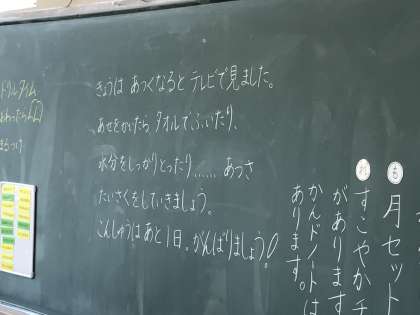 きょうは あつくなると テレビで見ました。
あせをかいたら タオルでふいたり、
水分をしっかりとったり…… あつさ
たいさくをしていきましょう。
こんしゅうは あと1日。がんばりましょう!
も
月セット
れ
すこやかチ
があります
かんドノートは
あります。
ドリルタイム
おわったら
まるつけ